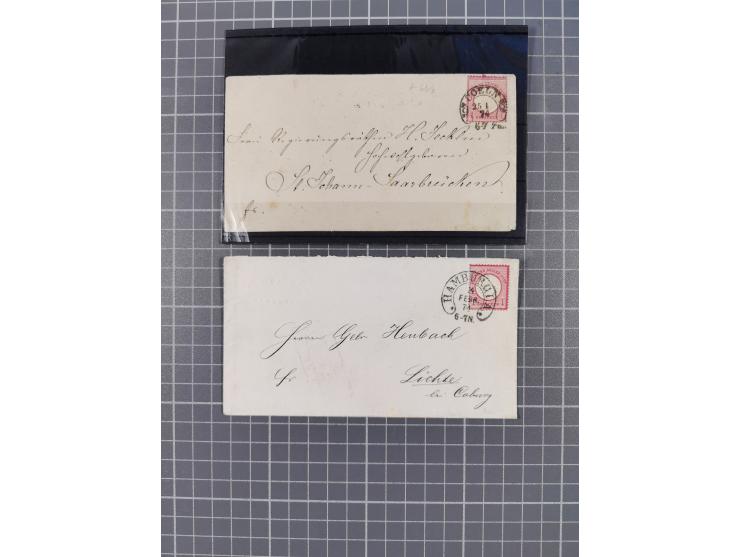 COELN
25 1
74
6-7 N.
Frau Regierungsräthin H.
Hochwohlgeboren
St. Johann-Saarbrücken
fr.
HAMBURG I.
FEBR.
74
6-7N.
1
Herren Gebr Heubach
fr
Lichte
bei Coburg